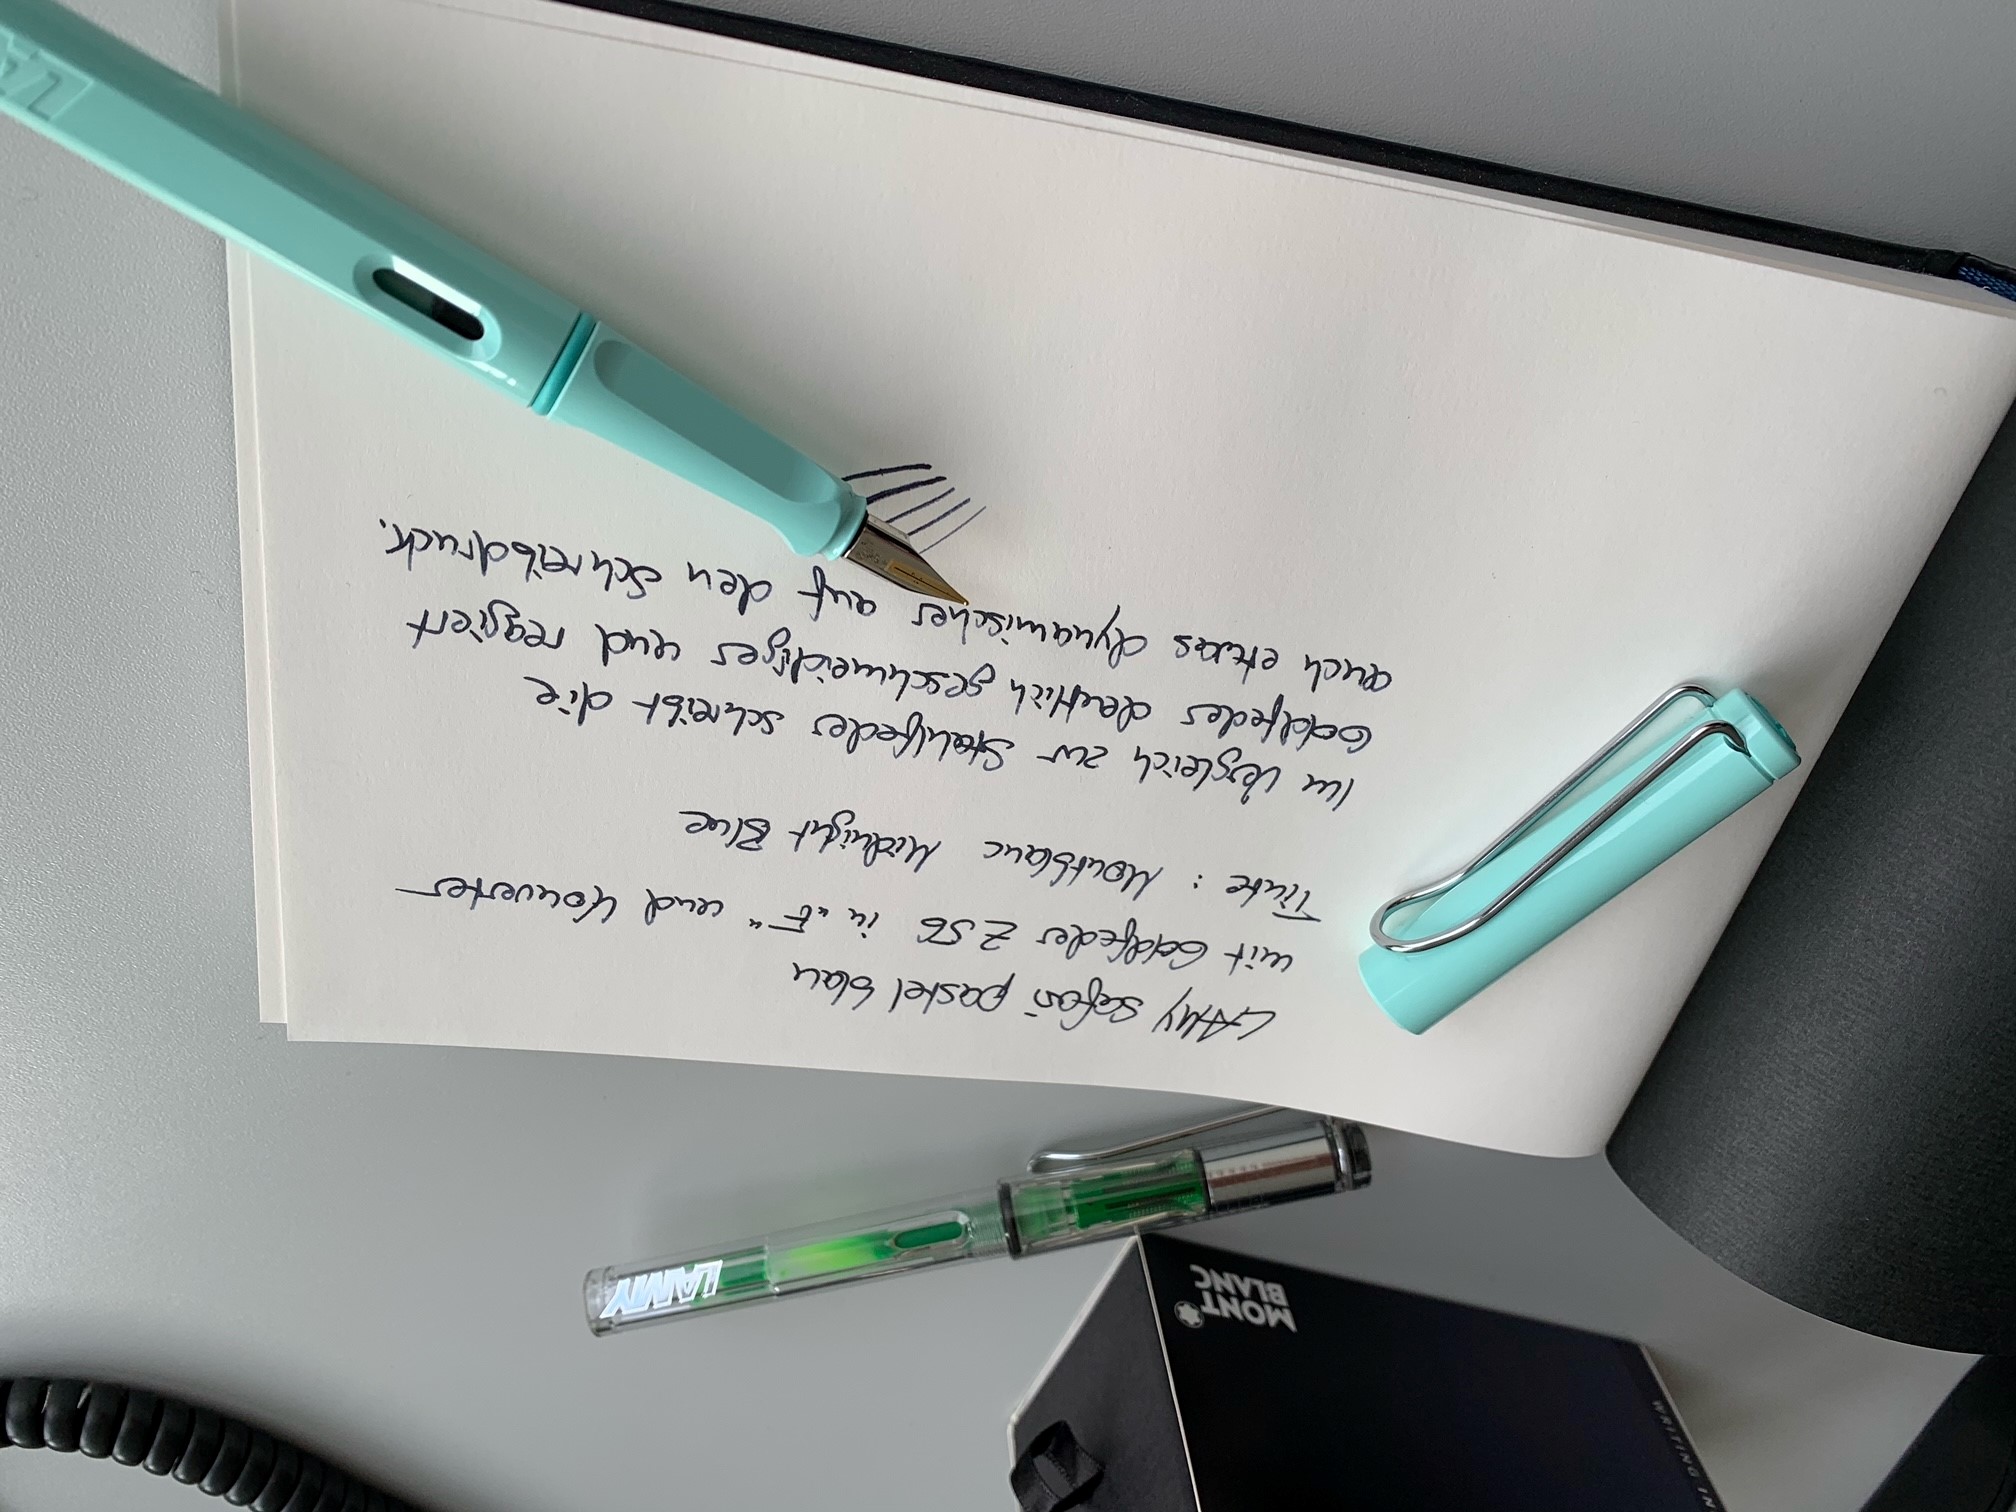 LAMY safari pastel blau
mit Goldfeder Z56 in „F" und Konverter
Tinte: Montblanc Midnight Blue
Im Vergleich zur Stahlfeder schreibt die
Goldfeder deutlich geschmeidiger und reagiert
auch etwas dynamischer auf den Schreibdruck.
LAMY
MONT
BLANC
WRITING IN